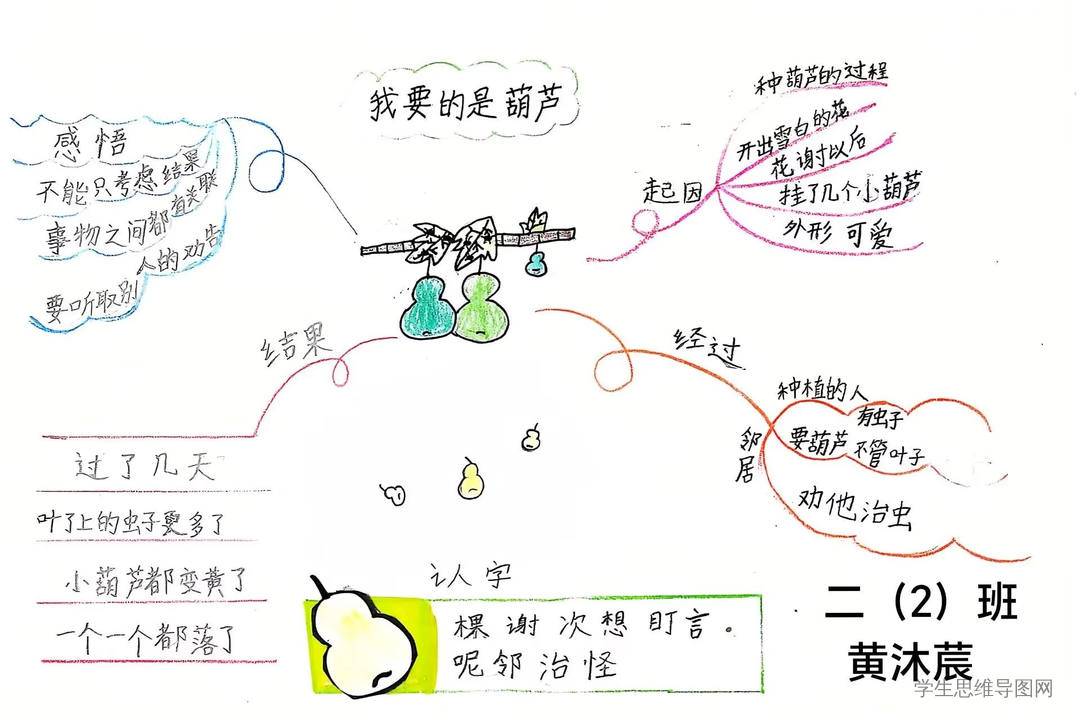 我要的是葫芦
起因
种葫芦的过程
开出雪白的花
花谢以后
挂了几个小葫芦
外形可爱
经过
种植的人
要葫芦
有虫子
不管叶子
邻居
劝他治虫
结果
过了几天
叶子上的虫子更多了
小葫芦都变黄了
一个一个都落了
感悟
不能只考虑结果
事物之间都有关联
要听取别人的劝告
认字
棵谢次想盯言
呢邻治怪
二（2）班
黄沐莀
学生思维导图网